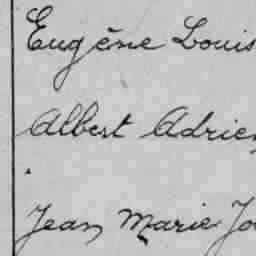 Eugène Louis
Albert Adrien
Jean Marie